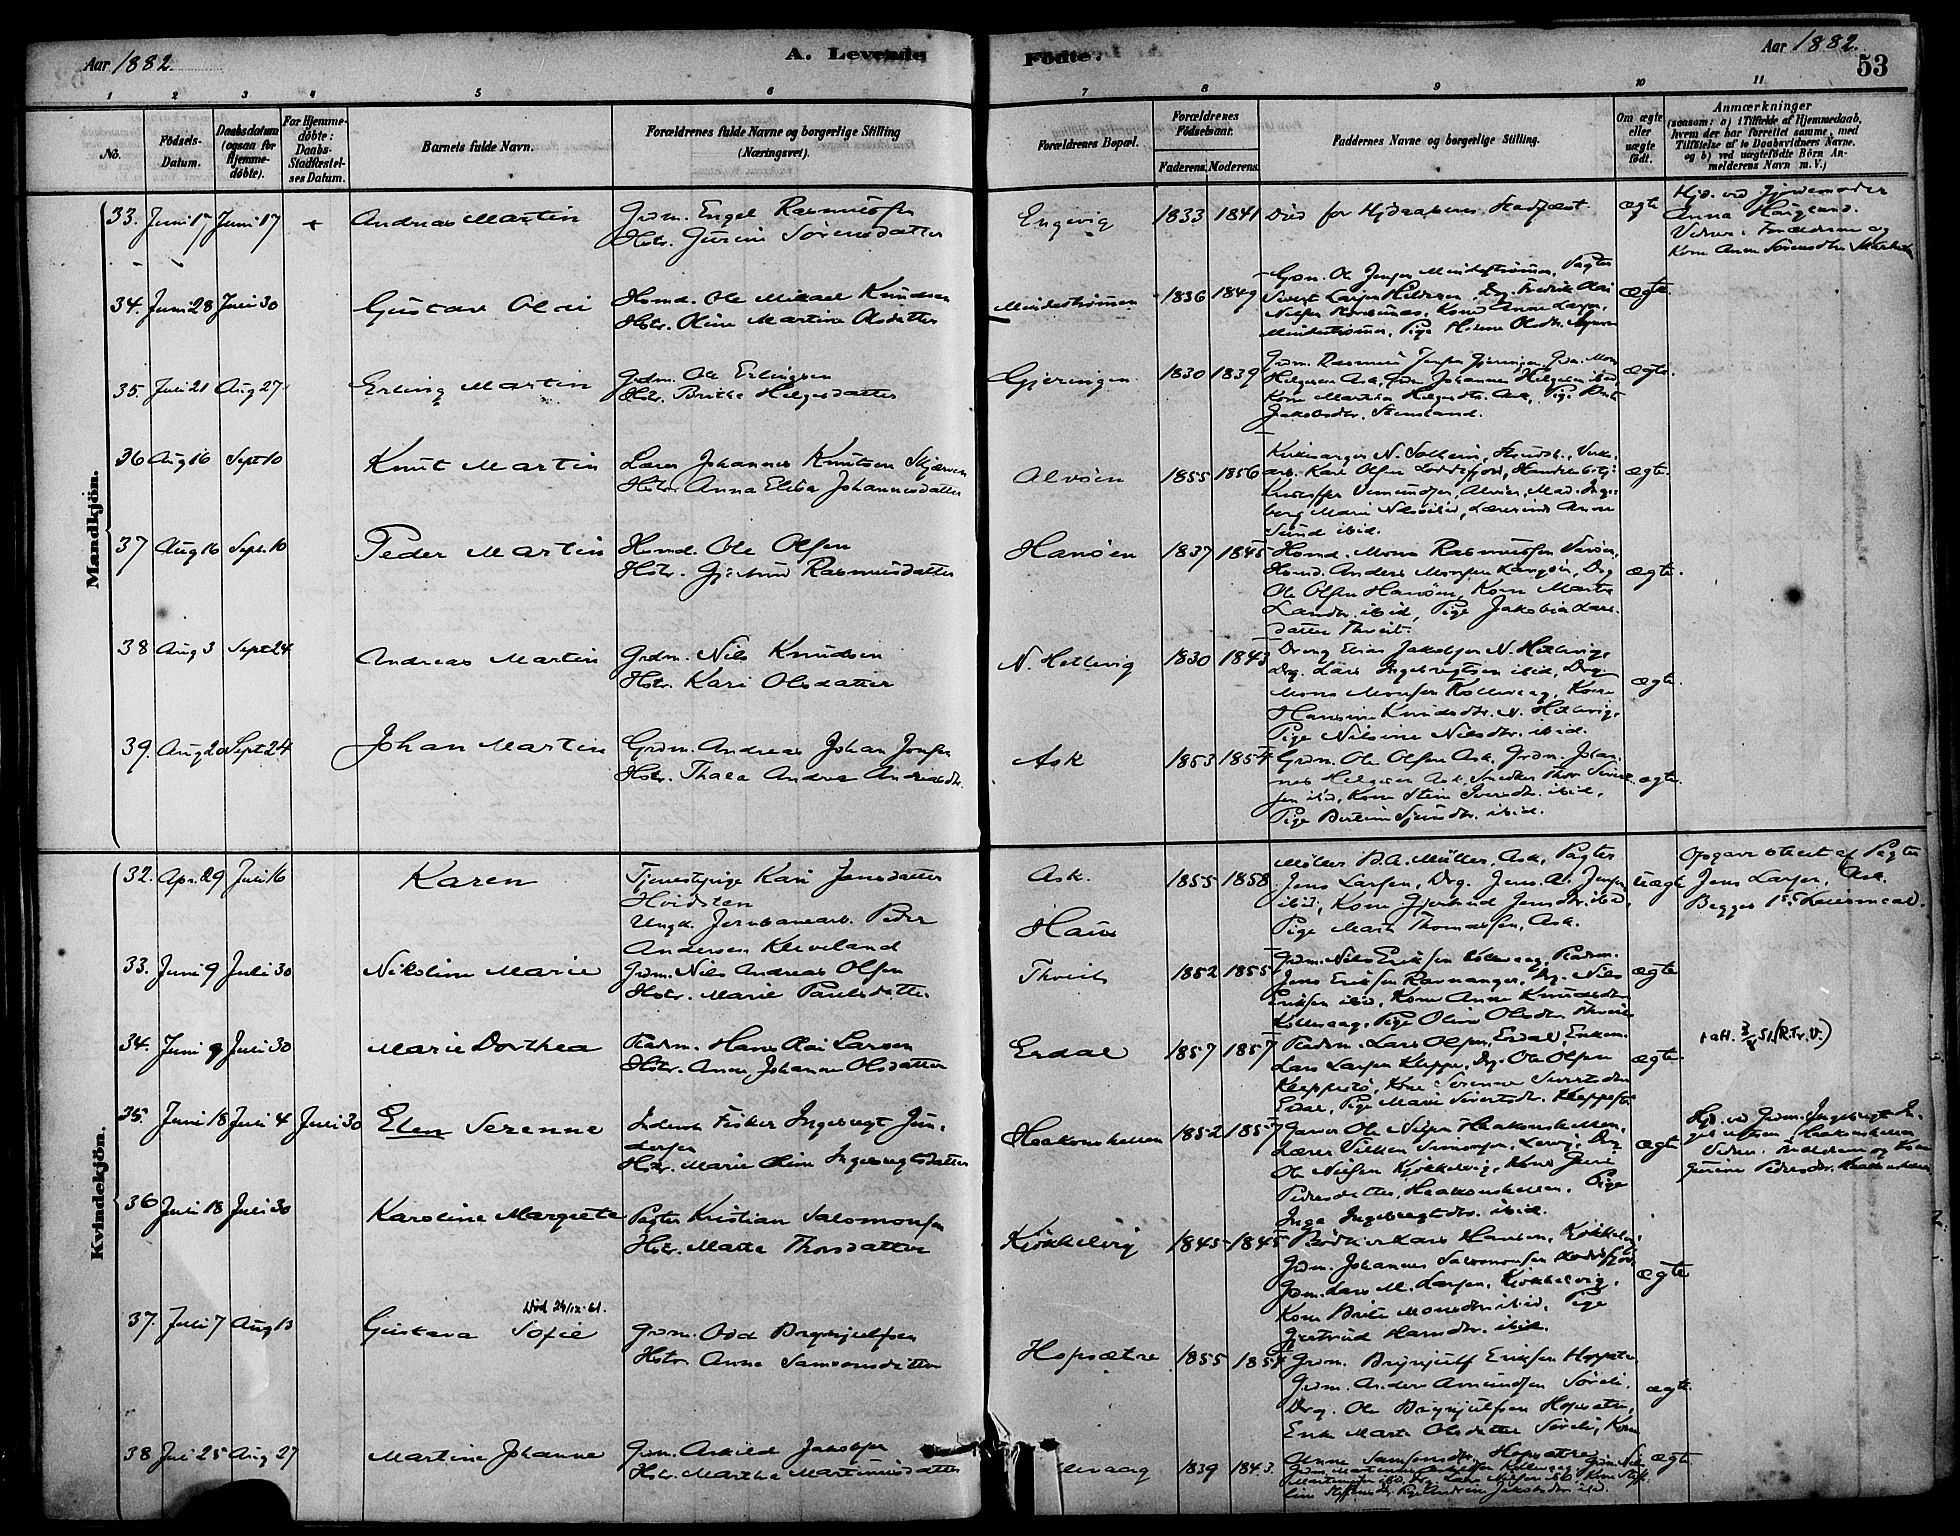 Aar 1882.
A. Levende
Födte.
Aar 1882.
53
1 2 3 4 5 6 7 8 9 10 11
No.
Födsels-
Datum.
Daabsdatum
(ogsaa for
Hjemme-
döbte).
For Hjemme-
döbte:
Daabs-
Stadfæstel-
ses Datum.
Barnets fulde Navn.
Forældrenes fulde Navne og borgerlige Stilling
(Næringsvei).
Forældrenes Bopæl.
Forældrenes
Födselsaar.
Faderens.
Moderens.
Faddernes Navne og borgerlige Stilling.
Om ægte
eller
uægte
födt.
Anmærkninger
(saasom: a) i Tilfælde af Hjemmedaab,
hvem der har forrettet samme, med
Tilföielse af to Daabsvidners Navne.
og b) ved uægtefödte Börn An-
melderens Navn m. V.)
Mandkjön.
33. Juni 17 Juni 17 + Andreas Martin
Grdm. Engel Rasmussen
Hstr. Gurine Sörensdatter
Engevig 1833 1841
Död for
ægte
Hjd. ved Gjordemoder
Anna Haugland.
Vidner: Forældrene og
Kone Anne Sörensdtr.
34. Juni 28 Juli 30 Gustav Olai
Husmd. Ole Mikael Knudsen
Hstr. Oline Martine Olsdatter
Mindeströmmen 1836 1849
Grm. Ole Jensen Mindeströmmen, Pagter
Sivert Larsen Drg. Fredrik Olai
Nilsen Kone Anne Larsen
Mindeströmmen, Pige Helene Olsdtr.
ægte
35. Juli 21 Aug 27 Erling Martin
Grdm. Ole Erlingsen
Hstr. Brithe Helgesdatter
Gjeringen 1830 1839
Grdm. Rasmus Jensen Gjeringen, Grdm. Mons
Helgesen Ask, Grdm. Johannes Helgesen ibid,
Kone Martha Helgesdtr. Ask, Pige
Jakobsdtr. Steinsland.
ægte
36 Aug 16 Sept 10 Knut Martin
Lærer Johannes Knutsen Skjerven
Hstr. Anna Elisa Johannesdatter
Alvöen 1855 1856
Kirkesanger N. Solheim,
Karl Olsen Loddefjord, Handelsbetj.
Kristoffer Alvöen, Mad. Inge-
borg Marie ibid, Lærerinde Anna
Sund ibid.
ægte
37 Aug 16 Sept. 10 Peder Martin
Husmd. Ole Olsen
Hstr. Gjertrud Rasmusdatter
Hanöen 1837 1845
Husmd. Mons Rasmussen
Husmd. Anders Monsen Drg
Ole Olsen Hanöen, Kone Marta
Larsdtr. ibid, Pige Jakobia Lars-
datter Thveit.
ægte
38 Aug 3 Sept 24 Andreas Martin
Grdm. Nils Knudsen
Hstr. Kari Olsdatter
N. Hetlevig 1830 1843
Dreng Elias Jakobsen N. Hetlevig,
Drg. Lars Ingebregtsen ibid, Drg.
Mons Monsen Kollevaag, Kone
Hansine Knudsdtr. N. Hetlevig,
Pige Nilsine Nilsdtr. ibid.
ægte
39. Aug 20 Sept 24 Johan Martin
Grdm. Andreas Johan Jonsen
Hstr. Thala Andrea Andreasdtr.
Ask 1853 1857
Grdm. Ole Olsen Ask, Grdm. Johan-
nes Helgesen Ask, Snedker Thor
ibid, Kone Stina Iversdtr. ibid,
Pige ibid.
ægte
Kvindekjön.
32. Apr. 29 Juli 16 Karen
Tjenestepige Kari Jensdatter
Hvidsten
Ungk. Jernbanearb. Peder
Andersen Kleveland
Ask.
Haus
1855 1858.
Möller B. A. Müller, Ask, Pagter
Jens Larsen, Drg. Jens A. Jensen
ibid, Kone Gjertrud Jensdtr. ibid,
Pige Marta Thomassen, Ask.
uægte
Opgave attest. af Pagter
Jens Larsen, Ask.
Begges 1ste Leiermaal.
33. Juni 9 Juli 30 Nikoline Marie
Grdm. Nils Andreas Olsen
Hstr. Marie Paulsdatter
Thveit 1852 1855
Grdm. Nils Eriksen Kollevaag,
Jens Eriksen Ravnanger, Drg. Nils
Eriksen ibid, Kone Anne Knudsdtr.
Kollevaag, Pige Oline Olsdtr. Thveit
ægte
34. Juni 9 Juli 30 Marie Dorthea
Hans Kai Larsen
Hstr. Anne Johanne Olsdatter
Erdal 1857 1857
Lars Olsen, Erdal, Enkem.
Lars Larsen Kleppe, Drg. Ole Olsen
Kleppestö, Kone Serenne Sivertsdtr.
Erdal, Pige Marie Sivertsdtr. Kleppestö
ægte
35. Juni 18 Juli 4 Juli 30 Elen Serenne
Inderst Fisker Ingebregt Gun-
dersen
Hstr. Marie Oline Ingebregtsdatter
Haakonshellen 1852 1857
Garver Ole Nilsen Haakonshellen,
Lærer Vilken Simonsen, Drg.
Ole Nilsen Kjökkelvig, Kone Guri
Pedersdatter, Haakonshellen, Pige
Inga Ingebregtsdtr. ibid.
ægte
Hjd. ved Grdm. Ingebregt In-
gebregtsen Haakonshellen
Vidner: Forældrene og Kone
Gurine Pedersdtr. Haakonshellen
36 Juli 18 Juli 30 Karoline Margrete
Pagter Kristian Salomonsen
Hstr. Marta Thorsdatter
Kjökkelvig 1845 1845
Bödker Lars Hansen, Kjökkelvig,
Grdm. Johannes Salomonsen Loddefjord,
Grdm. Lars M. Larsen, Kjökkelvig,
Kone Brite Monsdtr. ibid, Pige
Gjertrud Hansdtr. ibid.
ægte
37. Juli 7 Aug 13 Gustava Sofie
Död 24/12-61.
Grdm. Odd Brynjulfsen
Hstr Anne Samsonsdatter
Hopsætre 1855 1854
Grdm. Brynjulf Eriksen Hopsætre
Grdm. Anders Amundsen Söreli,
Drg. Ole Brynjulfsen Hopsætre,
Enke Marta Olsdatter Söreli, Kone
Anne Samsonsdtr. Hopsætre
ægte.
38 Juli 25 Aug 27 Martine Johanne
Grdm. Askild Jakobsen
Hstr. Martha Martinusdatter
levaag 1839 1843.
ægte